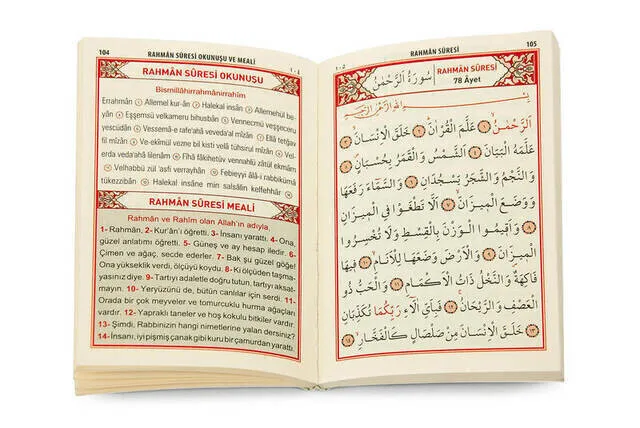 104
RAHMÂN SÛRESİ OKUNUŞU VE MEALİ
١٠٤
RAHMÂN SÛRESİ OKUNUŞU
Bismillâhirrahmânirrahîm
Errahmân ① Allemel kur-ân ② Halekal insân ③ Allemehül be-
yân ④ Eşşemsü velkameru bihusbân ⑤ Vennecmü veşşeceru
yescüdân ⑥ Vessemâ-e rafe'ahâ veveda'al mîzân ⑦ Ellâ tetğav
fil mîzân ⑧ Ve-ekîmül vezne bil kisti velâ tühsirul mîzân ⑨ Vel-
erda veda'ahâ lilenâm ⑩ Fîhâ fâkihetüv vennahlü zâtül ekmâm
⑪ Velhabbü zül 'asfi verrayhân ⑫ Febieyyi âlâ-i rabbikümâ
tükezzibân ⑬ Halekal insâne min salsâlin kelfehhâr ⑭
RAHMÂN SÛRESİ MEALİ
Rahmân ve Rahîm olan Allah'ın adıyla
1- Rahmân, 2- Kur'ân'ı öğretti. 3- İnsanı yarattı. 4- Ona,
güzel anlatımı öğretti. 5- Güneş ve ay hesap iledir. 6-
Çimen ve ağaç, secde ederler. 7- Bak şu güzel göğe!
Ona yükseklik verdi, ölçüyü koydu. 8- Ki ölçüden taşma-
yasınız diye. 9- Tartıyı adaletle doğru tutun, tartıyı aksat-
mayın. 10- Yeryüzünü de, bütün canlılar için serdi. 11-
Orada bir çok meyveler ve tomurcuklu hurma ağaçları
vardır. 12- Yapraklı taneler ve hoş kokulu bitkiler vardır.
13- Şimdi, Rabbinizin hangi nimetlerine yalan dersiniz?
14- İnsanı, iyi pişmiş çanak gibi kuru bir çamurdan yarattı.
١٠٥
RAHMÂN SÛRESİ
105
سُورَةُ الرَّحْمٰنِ
RAHMÂN SÛRESİ
78 Âyet
بِسْمِ اللّٰهِ الرَّحْمٰنِ الرَّحِيمِ
اَلرَّحْمٰنُ ١ عَلَّمَ الْقُرْاٰنَ ٢ خَلَقَ الْاِنْسَانَ ٣
عَلَّمَهُ الْبَيَانَ ٤ اَلشَّمْسُ وَالْقَمَرُ بِحُسْبَانٍ ٥
وَالنَّجْمُ وَالشَّجَرُ يَسْجُدَانِ ٦ وَالسَّمَاءَ رَفَعَهَا
وَوَضَعَ الْمِيزَانَ ٧ اَلَّا تَطْغَوْا فِي الْمِيزَانِ
٨ وَاَقِيمُوا الْوَزْنَ بِالْقِسْطِ وَلَا تُخْسِرُوا
الْمِيزَانَ ٩ وَالْاَرْضَ وَضَعَهَا لِلْاَنَامِ ١٠ فِيهَا
فَاكِهَةٌ وَالنَّخْلُ ذَاتُ الْاَكْمَامِ ١١ وَالْحَبُّ ذُو
الْعَصْفِ وَالرَّيْحَانُ ١٢ فَبِاَيِّ اٰلَاءِ رَبِّكُمَا تُكَذِّبَانِ
١٣ خَلَقَ الْاِنْسَانَ مِنْ صَلْصَالٍ كَالْفَخَّارِ ١٤